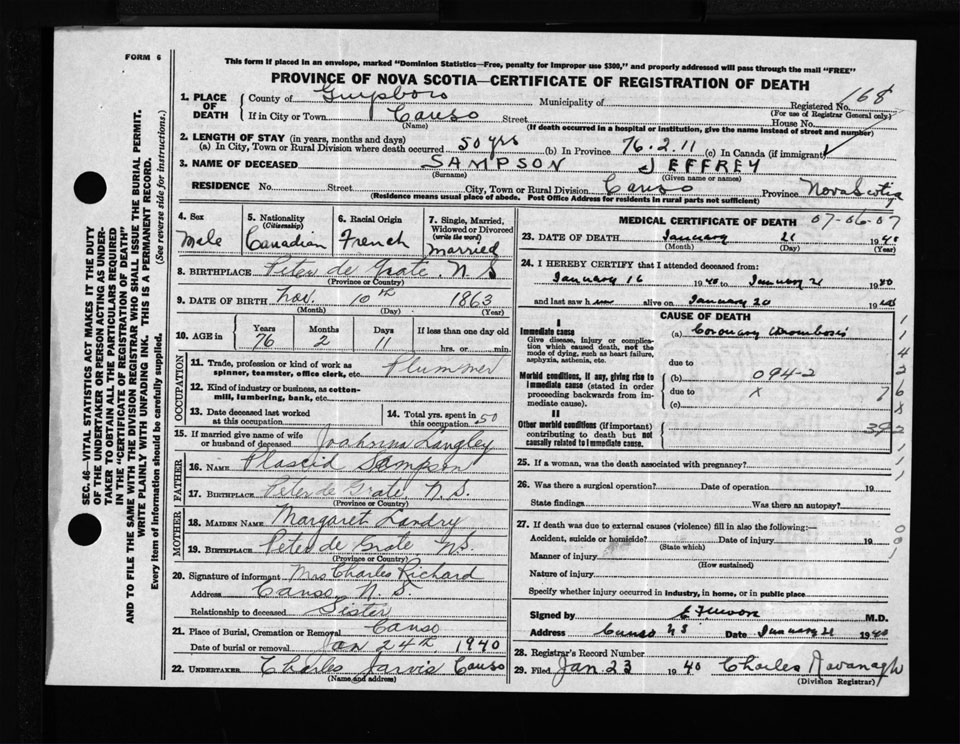 FORM 6
This form if placed in an envelope, marked "Dominion Statistics—Free, penalty for improper use $300," and properly addressed will pass through the mail "FREE"
PROVINCE OF NOVA SCOTIA—CERTIFICATE OF REGISTRATION OF DEATH
SEC. 46—VITAL STATISTICS ACT MAKES IT THE DUTY
OF THE UNDERTAKER OR PERSON ACTING AS UNDER-
TAKER TO OBTAIN ALL THE PARTICULARS REQUIRED
IN THE "CERTIFICATE OF REGISTRATION OF DEATH"
AND TO FILE THE SAME WITH THE DIVISION REGISTRAR WHO SHALL ISSUE THE BURIAL PERMIT.
WRITE PLAINLY WITH UNFADING INK. THIS IS A PERMANENT RECORD.
Every item of information should be carefully supplied. (See reverse side for instructions.)
1. PLACE OF DEATH
County of Guysboro Municipality of Registered No. 168
(For use of Registrar General only)
If in City or Town Canso Street House No.
(Name) (If death occurred in a hospital or institution, give the name instead of street and number)
2. LENGTH OF STAY (in years, months and days)
(a) In City, Town or Rural Division where death occurred 50 yrs (b) In Province 76.2.11 (c) In Canada (if immigrant)
3. NAME OF DECEASED SAMPSON JEFFREY
(Surname) (Given name or names)
RESIDENCE No. Street City, Town or Rural Division Canso Province Nova Scotia
(Residence means usual place of abode. Post Office Address for residents in rural parts not sufficient)
4. Sex
Male
5. Nationality
(Citizenship)
Canadian
6. Racial Origin
French
7. Single, Married,
Widowed or Divorced
(write the word)
married
8. BIRTHPLACE Peter de Grate N S
(Province or Country)
9. DATE OF BIRTH Nov. 10th 1863
(Month) (Day) (Year)
10. AGE in
Years Months Days If less than one day old
76 2 11 hrs. or min.
OCCUPATION
11. Trade, profession or kind of work as
spinner, teamster, office clerk, etc. Plummer
12. Kind of industry or business, as cotton-
mill, lumbering, bank, etc.
13. Date deceased last worked
at this occupation
14. Total yrs. spent in
this occupation 50
15. If married give name of wife
or husband of deceased Joahnna Langley
FATHER
16. NAME Placid Sampson
17. BIRTHPLACE Peter de Grate, N.S.
(Province or Country)
MOTHER
18. MAIDEN NAME Margaret Landry
19. BIRTHPLACE Peter de Grate N.S.
(Province or Country)
20. Signature of informant Mrs Charles Richard
Address Canso N. S.
Relationship to deceased Sister
21. Place of Burial, Cremation or Removal Canso
Date of burial or removal Jan 24th 1940
22. UNDERTAKER Charles Jarvis Canso
(Name and address)
MEDICAL CERTIFICATE OF DEATH 07-06-07
23. DATE OF DEATH January 21 1940
(Month) (Day) (Year)
24. I HEREBY CERTIFY that I attended deceased from:
January 16 1940 to January 21 1940
and last saw him alive on January 20 1940
CAUSE OF DEATH
I
Immediate cause
Give disease, injury or complica-
tion which caused death, not the
mode of dying, such as heart failure,
asphyxia, asthenia, etc.
(a) Coronary thrombosis
due to
Morbid conditions, if any, giving rise to
immediate cause (stated in order
proceeding backwards from im-
mediate cause).
(b) 094-2
due to x 7
(c)
II
Other morbid conditions (if important)
contributing to death but not
causally related to immediate cause.
25. If a woman, was the death associated with pregnancy?
26. Was there a surgical operation? Date of operation 19
State findings Was there an autopsy?
27. If death was due to external causes (violence) fill in also the following:—
Accident, suicide or homicide? Date of injury 19
(State which)
Manner of injury
(How sustained)
Nature of injury
Specify whether injury occurred in industry, in home, or in public place
Signed by M.D.
Address Canso NS Date January 21 1940
28. Registrar's Record Number
29. Filed Jan 23 1940 Charles Kavanagh
(Division Registrar)